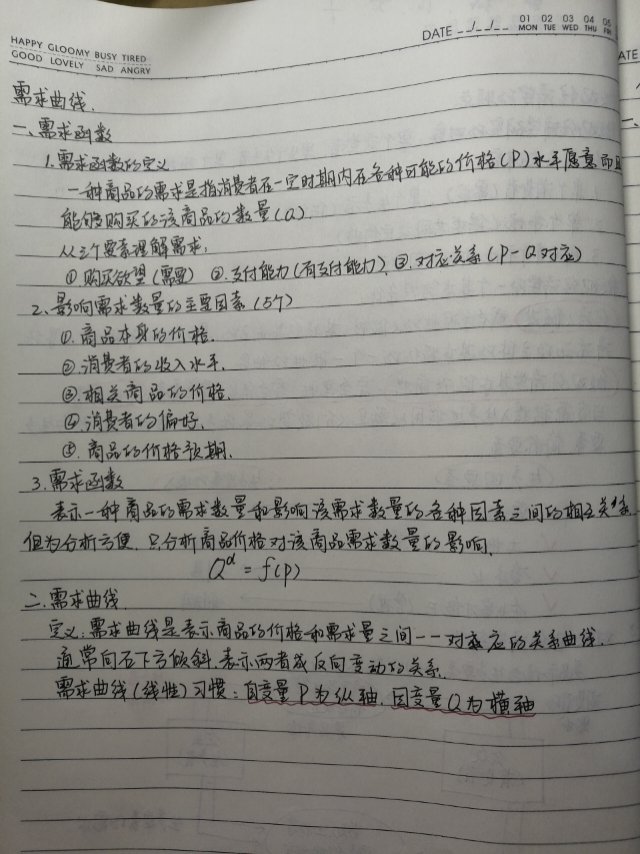 HAPPY GLOOMY BUSY TIRED
GOOD LOVELY SAD ANGRY
DATE _/_/_
01 02 03 04 05
MON TUE WED THU FRI
ATE
需求曲线.
一、需求函数
1.需求函数的定义
一种商品的需求是指消费者在一定时期内在各种可能的价格(P)水平愿意而且
能够购买的该商品的数量(Q).
从三个要素理解需求:
①购买欲望(需要) ②.支付能力(有支付能力). ③.对应关系(P-Q对应)
2.影响需求数量的主要因素(5个)
①.商品本身的价格.
②.消费者的收入水平.
③.相关商品的价格.
④.消费者的偏好.
⑤.商品的价格预期.
3.需求函数
表示一种商品的需求数量和影响该需求数量的各种因素之间的相互关系.
但为分析方便.只分析商品价格对该商品需求数量的影响.
Qᵈ = f(P)
二.需求曲线.
定义:需求曲线是表示商品的价格和需求量之间一一对应的关系曲线.
通常向右下方倾斜.表示两者成反向变动的关系.
需求曲线(线性)习惯:自变量P为纵轴.因变量Q为横轴